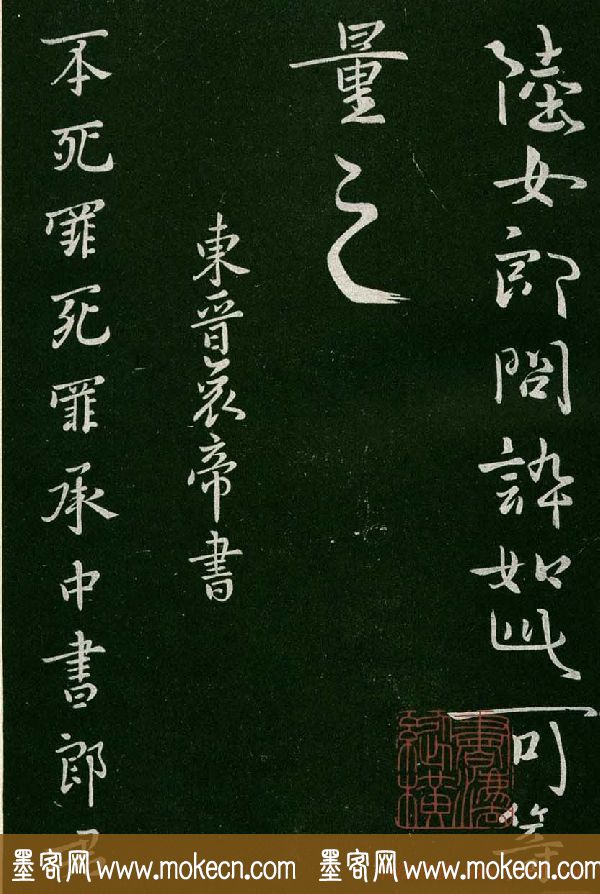 陸女郎問如此可等
量之
東晉哀帝書
丕死罪死罪承中書郎
書法縱橫
墨客网 www.mokecn.com 墨客网 www.mokecn.com